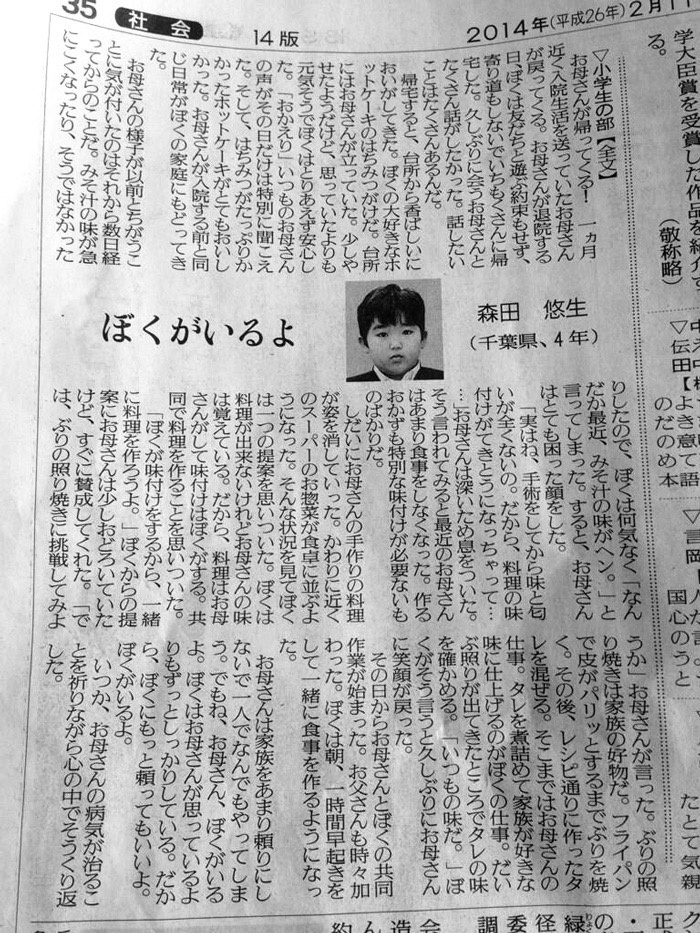 35 社会 14版 2014年(平成26年)2月1
学大臣賞を受賞した作品を紹介す
る。
(敬称略)
▽小学生の部【全文】
お母さんが帰ってくる! 一カ月
近く入院生活を送っていたお母さん
が戻ってくる。お母さんが退院する
日、ぼくは友だちと遊ぶ約束もせず、
寄り道もしないでいちもくさんに帰
宅した。久しぶりに会うお母さんと
たくさん話がしたかった。話したい
ことはたくさんあるんだ。
帰宅すると、台所から香ばしいに
おいがしてきた。ぼくの大好きなホ
ットケーキのはちみつがけだ。台所
にはお母さんが立っていた。少しや
せたようだけど、思っていたよりも
元気そうでぼくはとりあえず安心し
た。「おかえり」いつものお母さん
の声がその日だけは特別に聞こえ
た。そして、はちみつがたっぷりか
かったホットケーキがとてもおいし
かった。お母さんが入院する前と同
じ日常がぼくの家庭にもどってき
た。
お母さんの様子が以前とちがうこ
とに気が付いたのはそれから数日経
ってからのことだ。みそ汁の味が急
にこくなったり、そうではなかった
ぼくがいるよ
森田 悠生
(千葉県、4年)
りしたので、ぼくは何気なく「なん
だか最近、みそ汁の味がヘン。」と
言ってしまった。すると、お母さん
はとても困った顔をした。
「実はね、手術をしてから味と匂
いが全くないの。だから、料理の味
付けがてきとうになっちゃって…
…」お母さんは深いため息をついた。
そう言われてみると最近のお母さん
はあまり食事をしなくなった。作る
おかずも特別な味付けが必要ないも
のばかりだ。
しだいにお母さんの手作りの料理
が姿を消していった。かわりに近く
のスーパーのお惣菜が食卓に並ぶよ
うになった。そんな状況を見てぼく
は一つの提案を思いついた。ぼくは
料理が出来ないけれどお母さんの味
は覚えている。だから、料理はお母
さんがして味付けはぼくがする。共
同で料理を作ることを思いついた。
「ぼくが味付けをするから、一緒
に料理を作ろうよ。」ぼくからの提
案にお母さんは少しおどろいていた
けど、すぐに賛成してくれた。「で
は、ぶりの照り焼きに挑戦してみよ
うか」お母さんが言った。ぶりの照
り焼きは家族の好物だ。フライパン
で皮がパリッとするまでぶりを焼
く。その後、レシピ通りに作ったタ
レを混ぜる。そこまではお母さんの
仕事。タレを煮詰めて家族が好きな
味に仕上げるのがぼくの仕事。だい
ぶ照りが出てきたところでタレの味
を確かめる。「いつもの味だ。」ぼ
くがそう言うと久しぶりにお母さん
に笑顔が戻った。
その日からお母さんとぼくの共同
作業が始まった。お父さんも時々加
わった。ぼくは朝、一時間早起きを
して一緒に食事を作るようになっ
た。
お母さんは家族をあまり頼りにし
ないで一人でなんでもやってしま
う。でもね、お母さん、ぼくがいる
よ。ぼくはお母さんが思っているよ
りもずっとしっかりしている。だか
ら、ぼくにもっと頼ってもいいよ。
ぼくがいるよ。
いつか、お母さんの病気が治るこ
とを祈りながら心の中でそうくり返
した。